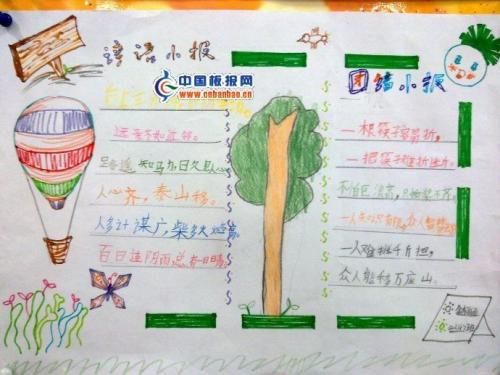 谚语小报
中国板报网
www.cnbanbao.cn
远亲不如近邻。
路遥知马力日久见人心
人心齐，泰山移。
人多计谋广，柴多火焰高。
百日连阴雨总有一日晴
团结小报
一根筷子容易折，
一把筷子难折断。
一人难挑千斤担，
众人能移万座山。